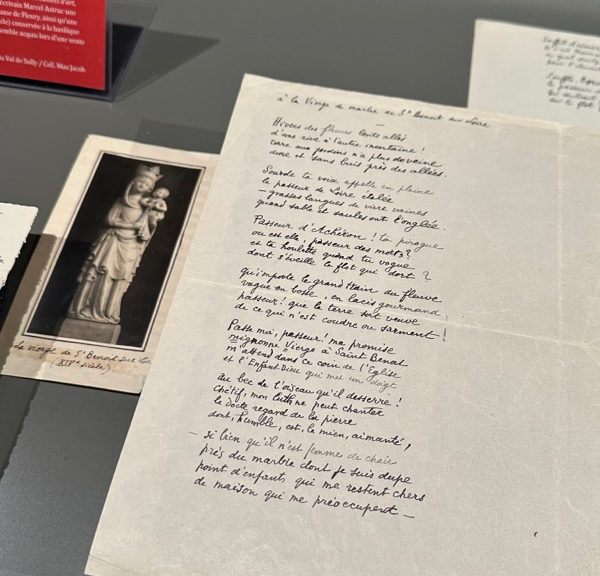 écrivain Marcel Astruc une
basse de Fleury, ainsi qu'une
cle) conservée à la basilique
semble acquis lors d'une vente
u Val de Sully / Coll. Max Jacob
à la Vierge de marbre de St Benoit sur Loire
Hivers des fleurs lents allés
d'une rive à l'autre incertaine !
terre aux jardins n'a plus de veine
dure et sans buis près des allées.
Sourde ta voix appelle en plaine
le passeur de Loire étalée
— grasses langues de vivre vaines
quand sable et saules ont l'onglée.
Passeur d'Achéron ! ta pirogue
où est-elle, passeur des morts ?
et ta houlette quand tu vogue
dont s'éveille le flot qui dort ?
Qu'importe le grand train du fleuve
vague en bosse, en lacis gourmand
passeur ! que la terre soit veuve
de ce qui n'est coudre ou sarment !
Passe moi, passeur, ma promise
mignonne Vierge à Saint Benoit
m'attend dans ce coin de l'Eglise
et l'Enfant Dieu qui met un doigt
au bec de l'oiseau qu'il desserre !
Chétif, mon luth ne peut chanter
le docte regard de la pierre
dont, humble, est, le mien, aimanté,
— si bien qu'il n'est femme de chair
près du marbre dont je suis dupe
point d'enfants qui me restent chers
de maison qui me préoccupent —
La Vierge de St Benoit sur Loi
(XIVe siècle)